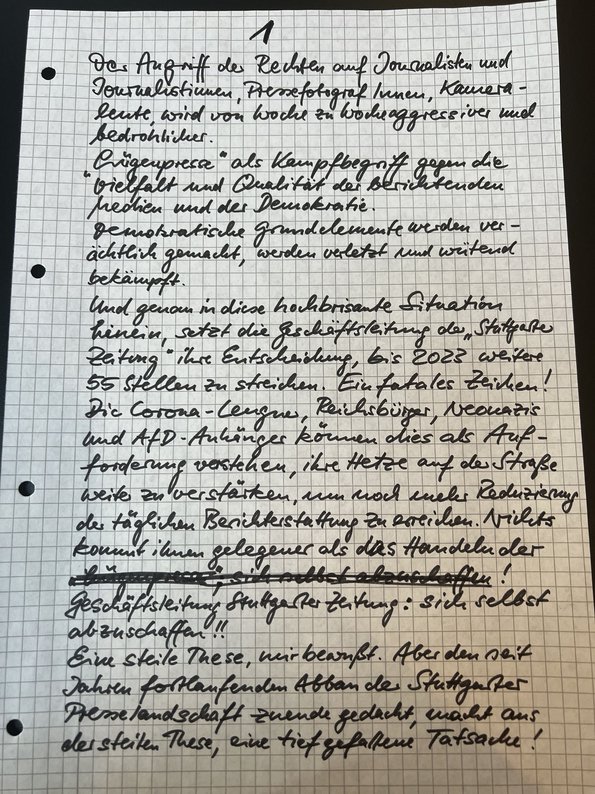 1
Der Angriff der Rechten auf Journalisten und
Journalistinnen, Pressefotograf Innen, Kamera-
leute, wird von Woche zu Woche aggressiver und
bedrohlicher.
"Lügenpresse" als Kampfbegriff gegen die
Vielfalt und Qualität der berichtenden
Medien und der Demokratie.
Demokratische Grundelemente werden ver-
ächtlich gemacht, werden verletzt und wütend
bekämpft.
Und genau in diese hochbrisante Situation
hinein, setzt die Geschäftsleitung der „Stuttgarter
Zeitung" ihre Entscheidung, bis 2023 weitere
55 Stellen zu streichen. Ein fatales Zeichen!
Die Corona-Leugner, Reichsbürger, Neonazis
und AfD-Anhänger können dies als Auf-
forderung verstehen, ihre Hetze auf der Straße
weiter zu verstärken, um noch mehr Reduzierung
der täglichen Berichterstattung zu erreichen. Nichts
kommt ihnen gelegener als das Handeln der
"Lügenpresse", sich selbst abzuschaffen!
Geschäftsleitung Stuttgarter Zeitung: sich selbst
abzuschaffen!!
Eine steile These, mir bewußt. Aber den seit
Jahren fortlaufenden Abbau der Stuttgarter
Presselandschaft zuende gedacht, macht aus
der steilen These, eine tief gefallene Tatsache!